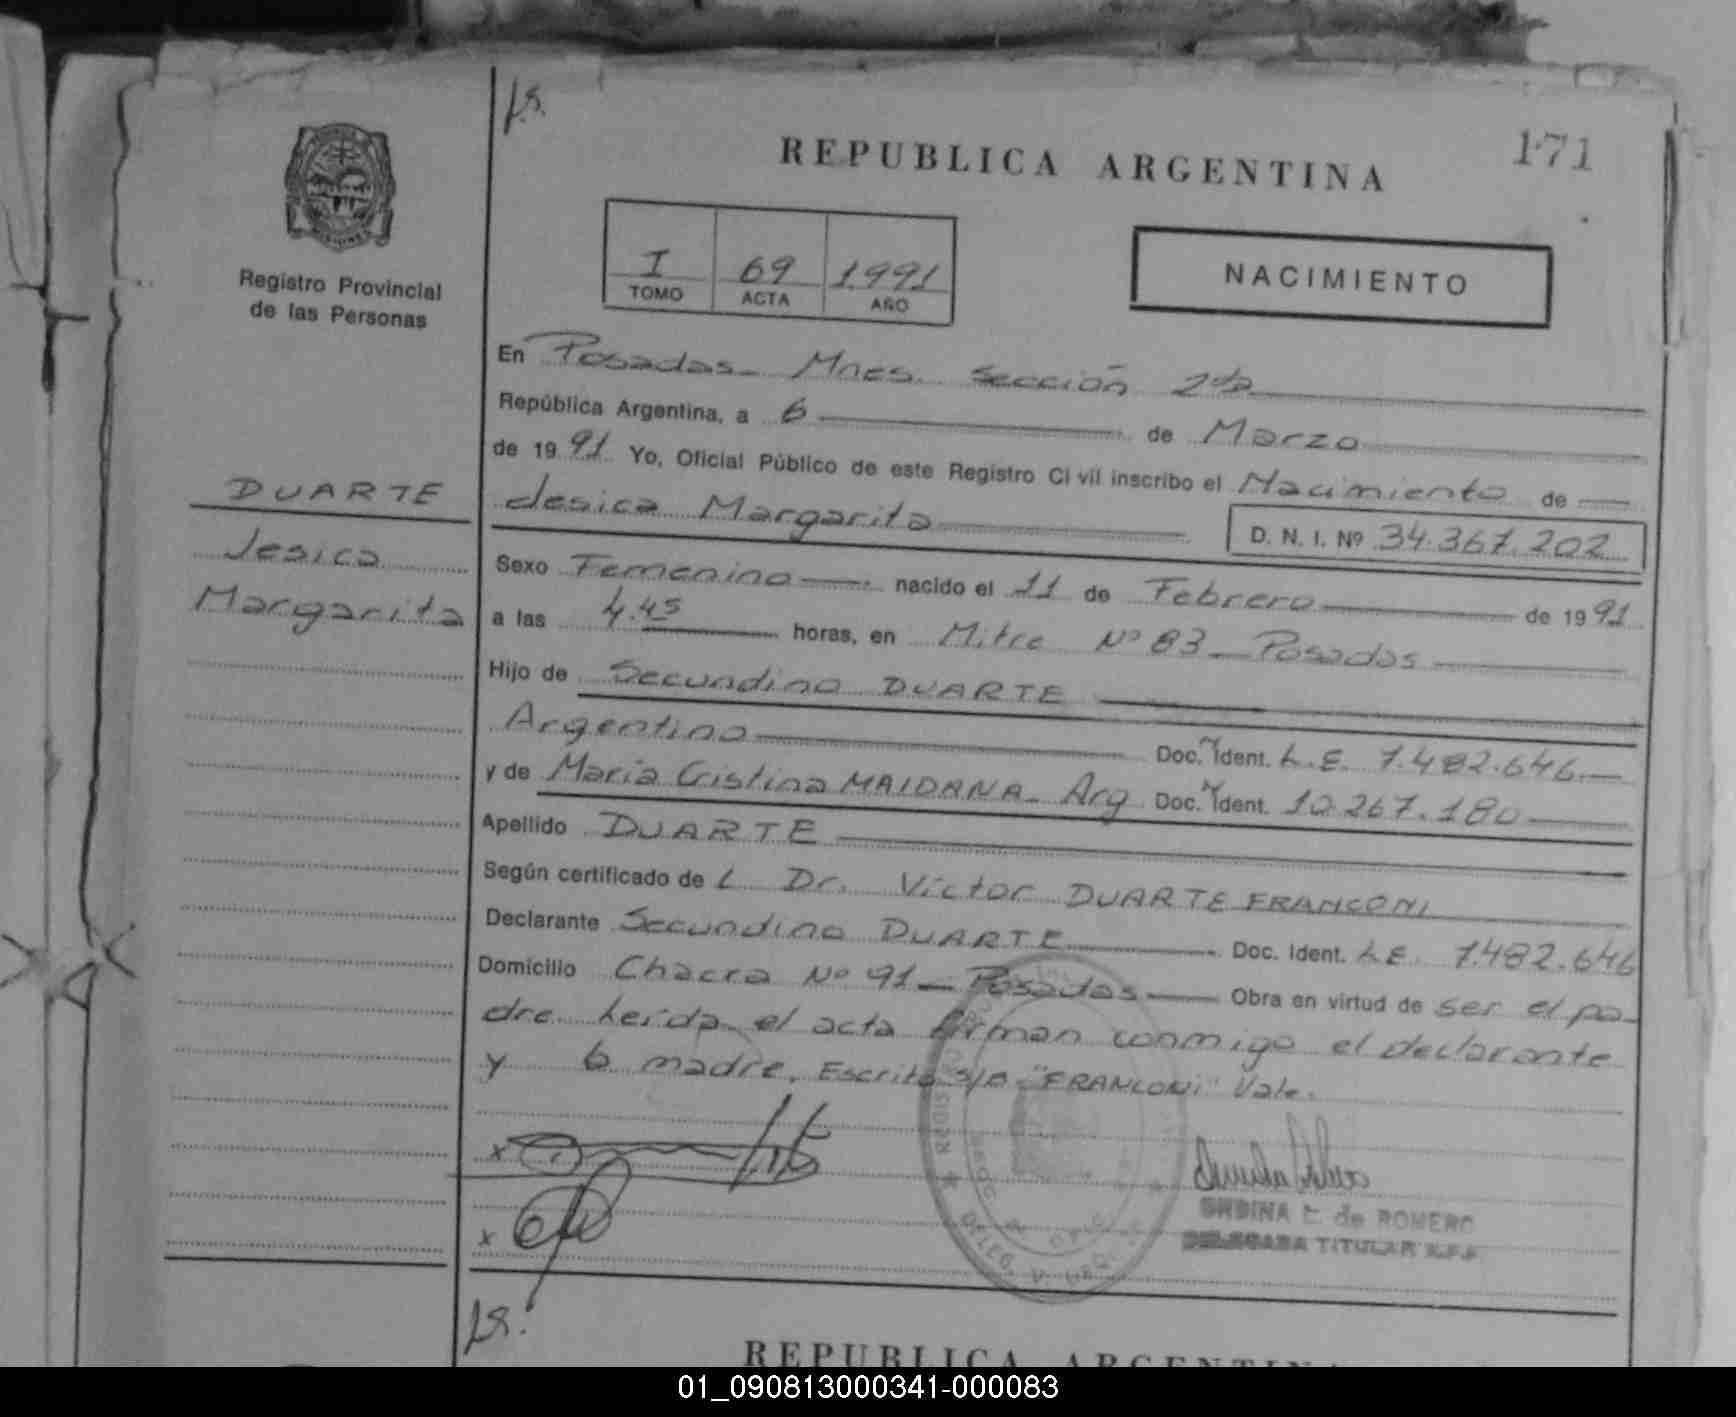 REPUBLICA ARGENTINA
171
MISIONES
Registro Provincial
de las Personas
I
TOMO
69
ACTA
1991
AÑO
NACIMIENTO
DUARTE
Jesica
Margarita
En Posadas - Mnes. Sección 2da
República Argentina, a 6 de Marzo
de 1991 Yo, Oficial Público de este Registro Civil inscribo el Nacimiento de
Jesica Margarita D. N. I. Nº 34.367.202
Sexo Femenino nacido el 11 de Febrero de 1991
a las 4.45 horas, en Mitre Nº 83 - Posadas
Hijo de Secundino DUARTE
Argentino Doc. Ident. L.E. 7.482.646.
y de María Cristina MAIDANA - Arg Doc. Ident. 10.267.180
Apellido DUARTE
Según certificado de L Dr. Víctor DUARTE FRANCONI
Declarante Secundino DUARTE Doc. Ident. L.E. 7.482.646
Domicilio Chacra Nº 91 - Posadas Obra en virtud de ser el pa-
dre. Leída el acta firman conmigo el declarante
y la madre. Escrito s/b "FRANCONI" Vale.
x
x
E. de ROMERO
DELEGADA TITULAR
REPUBLICA ARGENTINA
01_090813000341-000083